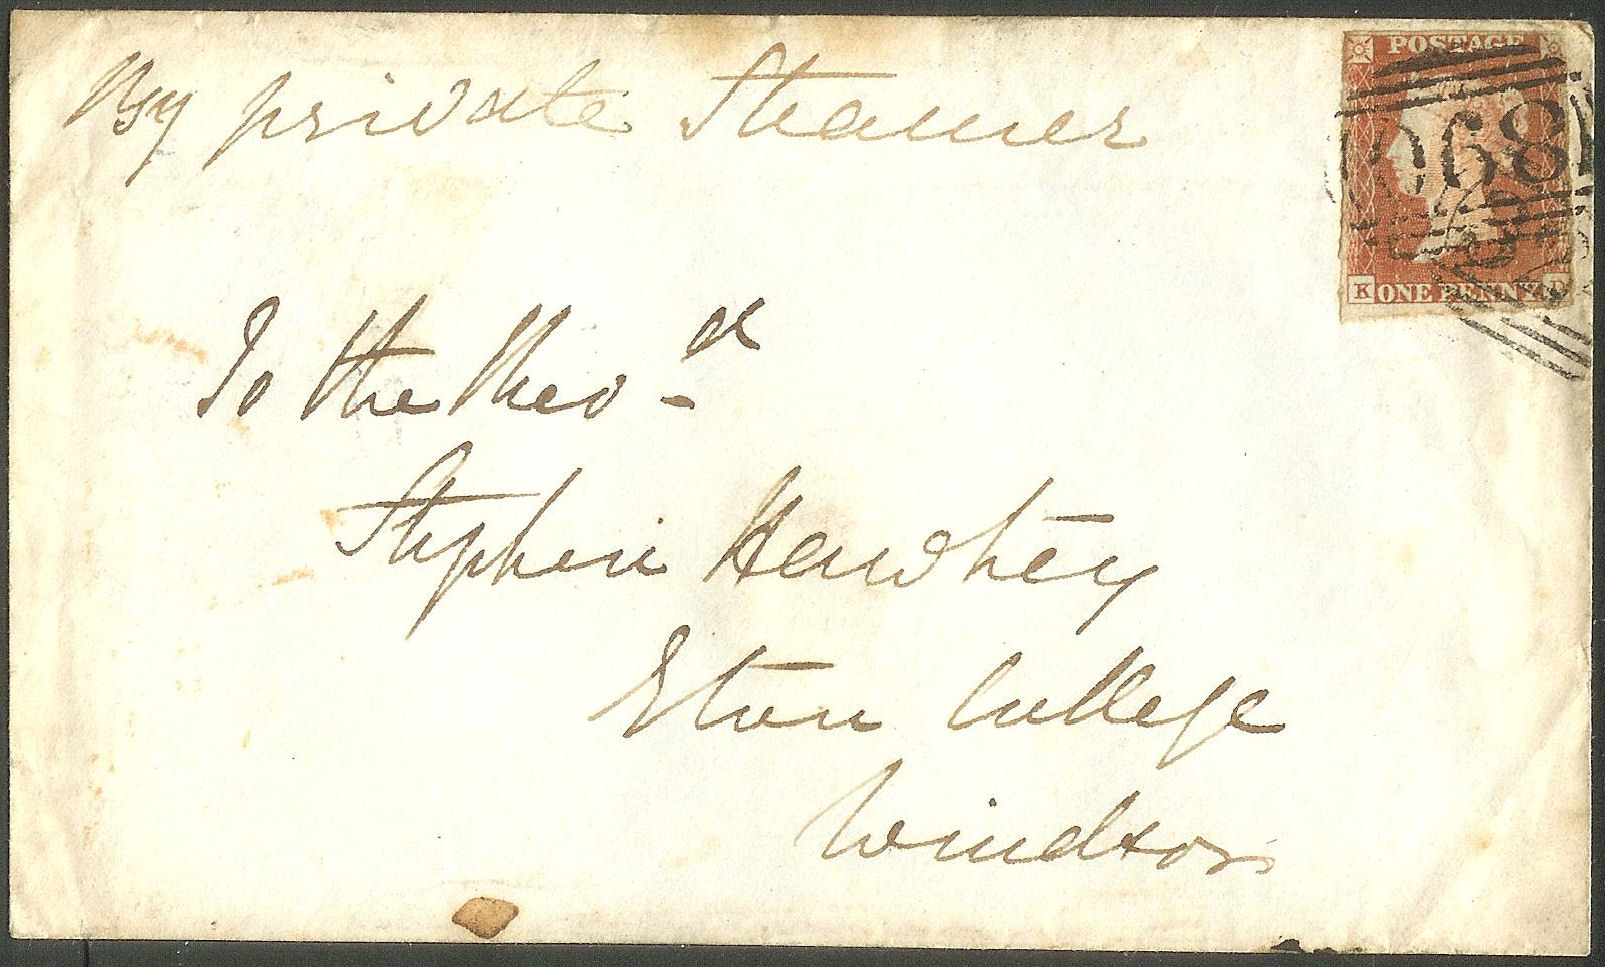 By private Steamer
POSTAGE
068
K ONE PENNY D
To the Revd
Stephen Hawtrey
Eton College
Windsor